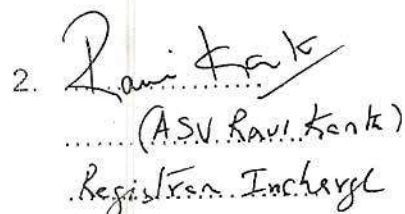 2. Ravi Kant
(ASV Ravi Kanth)
Registrar Incharge